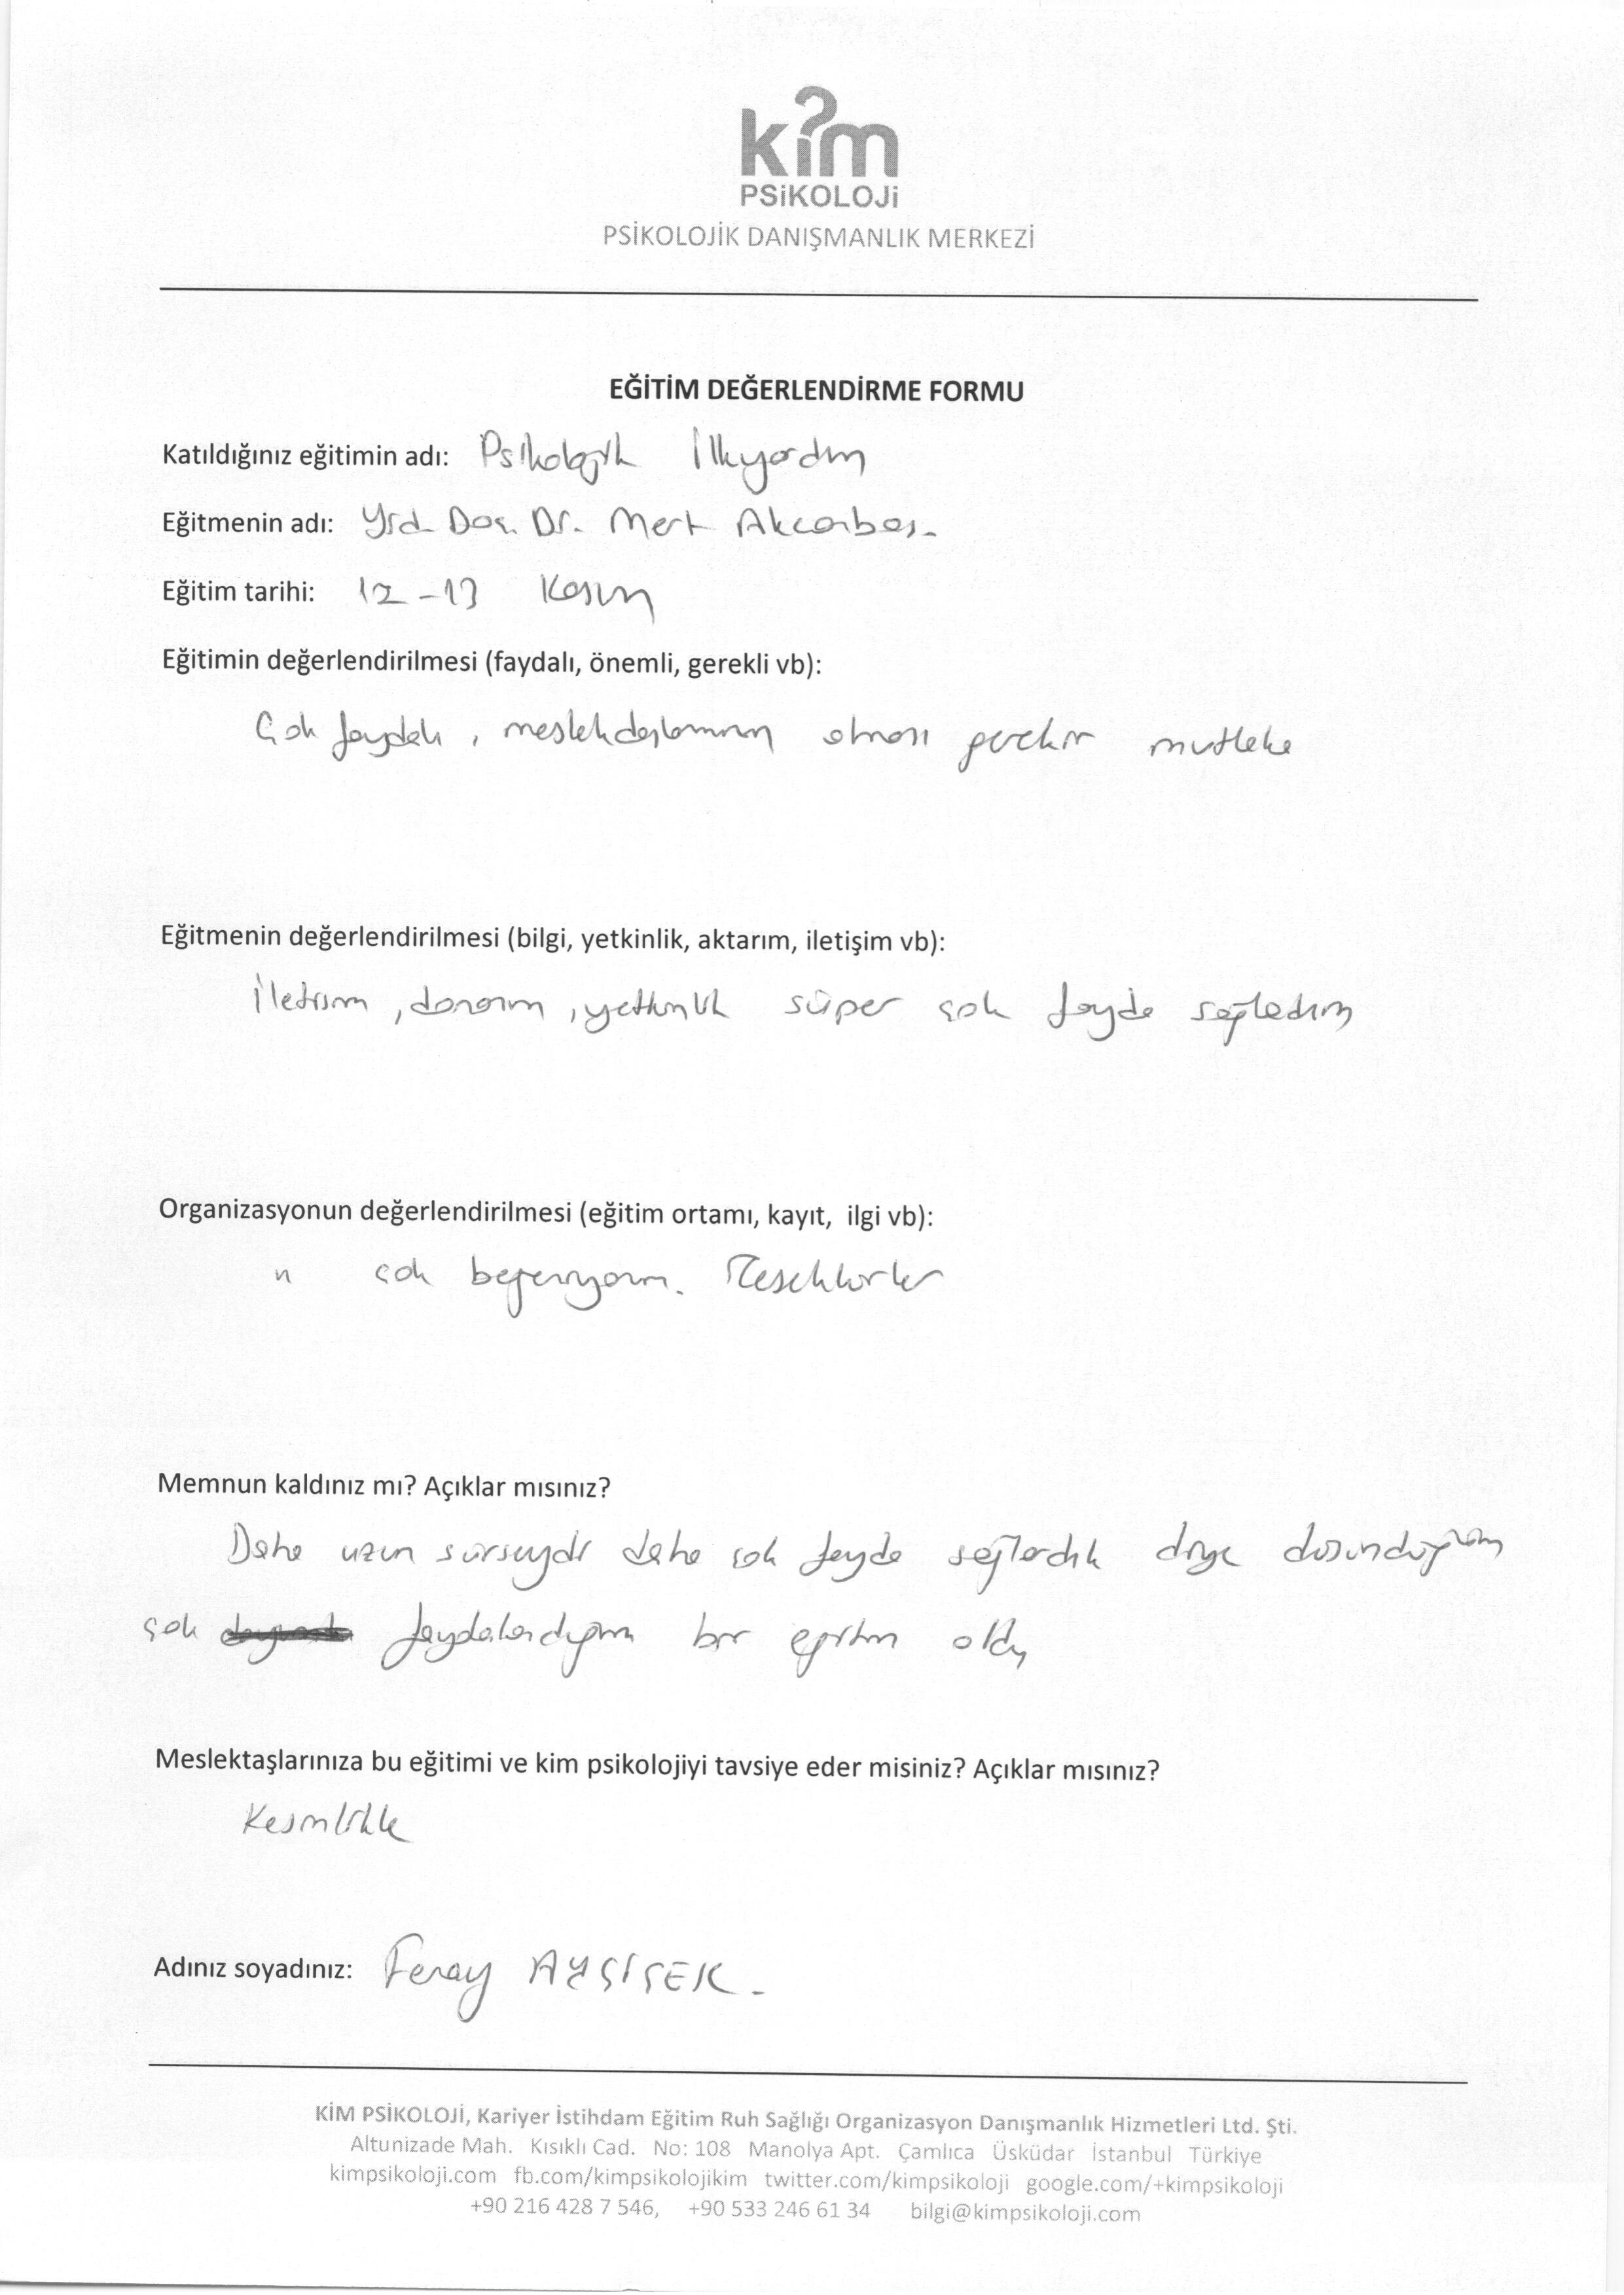 kim
PSiKOLOJi
PSİKOLOJİK DANIŞMANLIK MERKEZİ
EĞİTİM DEĞERLENDİRME FORMU
Katıldığınız eğitimin adı: Psikolojik İlkyardım
Eğitmenin adı: Yrd. Doç. Dr. Mert Akcanbaş.
Eğitim tarihi: 12-13 Kasım
Eğitimin değerlendirilmesi (faydalı, önemli, gerekli vb):
Çok faydalı, meslekdaşlarımın alması gerekir mutlaka
Eğitmenin değerlendirilmesi (bilgi, yetkinlik, aktarım, iletişim vb):
İletişim, donanım, yetkinlik süper çok fayda sağladım
Organizasyonun değerlendirilmesi (eğitim ortamı, kayıt, ilgi vb):
" çok beğeniyorum. Teşekkürler
Memnun kaldınız mı? Açıklar mısınız?
Daha uzun sürseydi daha çok fayda sağlardık diye düşündüğüm
çok faydalandığım bir eğitim oldu
Meslektaşlarınıza bu eğitimi ve kim psikolojiyi tavsiye eder misiniz? Açıklar mısınız?
Kesinlikle
Adınız soyadınız: Feray AYÇİÇEK.
KİM PSİKOLOJİ, Kariyer İstihdam Eğitim Ruh Sağlığı Organizasyon Danışmanlık Hizmetleri Ltd. Şti.
Altunizade Mah. Kısıklı Cad. No: 108 Manolya Apt. Çamlıca Üsküdar İstanbul Türkiye
kimpsikoloji.com fb.com/kimpsikolojikim twitter.com/kimpsikoloji google.com/+kimpsikoloji
+90 216 428 7 546, +90 533 246 61 34 bilgi@kimpsikoloji.com